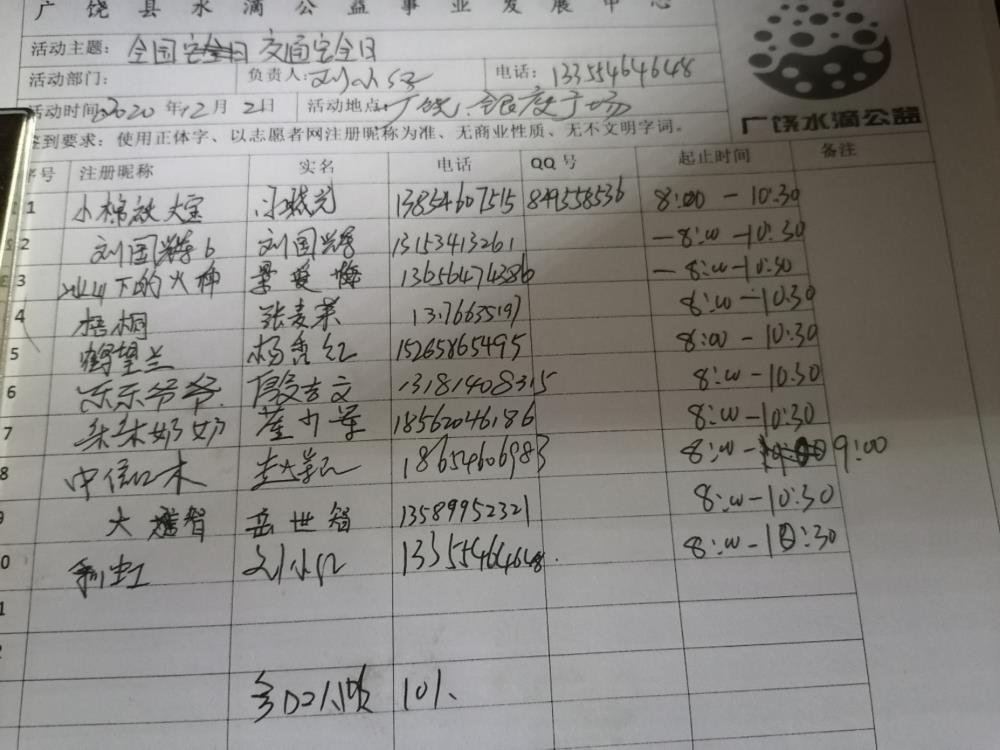 广饶县水滴公益事业发展中心
活动主题: 全国交通安全日
活动部门: 负责人: 刘小红 电话: 13355464648
活动时间: 2020年12月2日 活动地点: 广饶
广饶水滴公益
签到要求: 使用正体字、以志愿者网注册昵称为准、无商业性质、无不文明字词。
序号 注册昵称 实名 电话 QQ号 起止时间 备注
1 小棉袄大宝 13854607515 849558536 8:00-10:30
2 刘国辉6 刘国辉 13153413261 -8:00-10:30
3 冰山下的火神 13656474386 -8:00-10:30
4 梧桐 张麦荣 8:00-10:30
5 鹤望兰 杨秀红 15265865495 8:00-10:30
6 乐乐爷爷 13181408315 8:00-10:30
7 朵朵奶奶 18562046186 8:00-10:30
8 中信红木 18654606983 8:00-9:00
9 大智 岳世智 13589952321 8:00-10:30
10 刘小红 13355464648. 8:00-10:30
1
2
10人